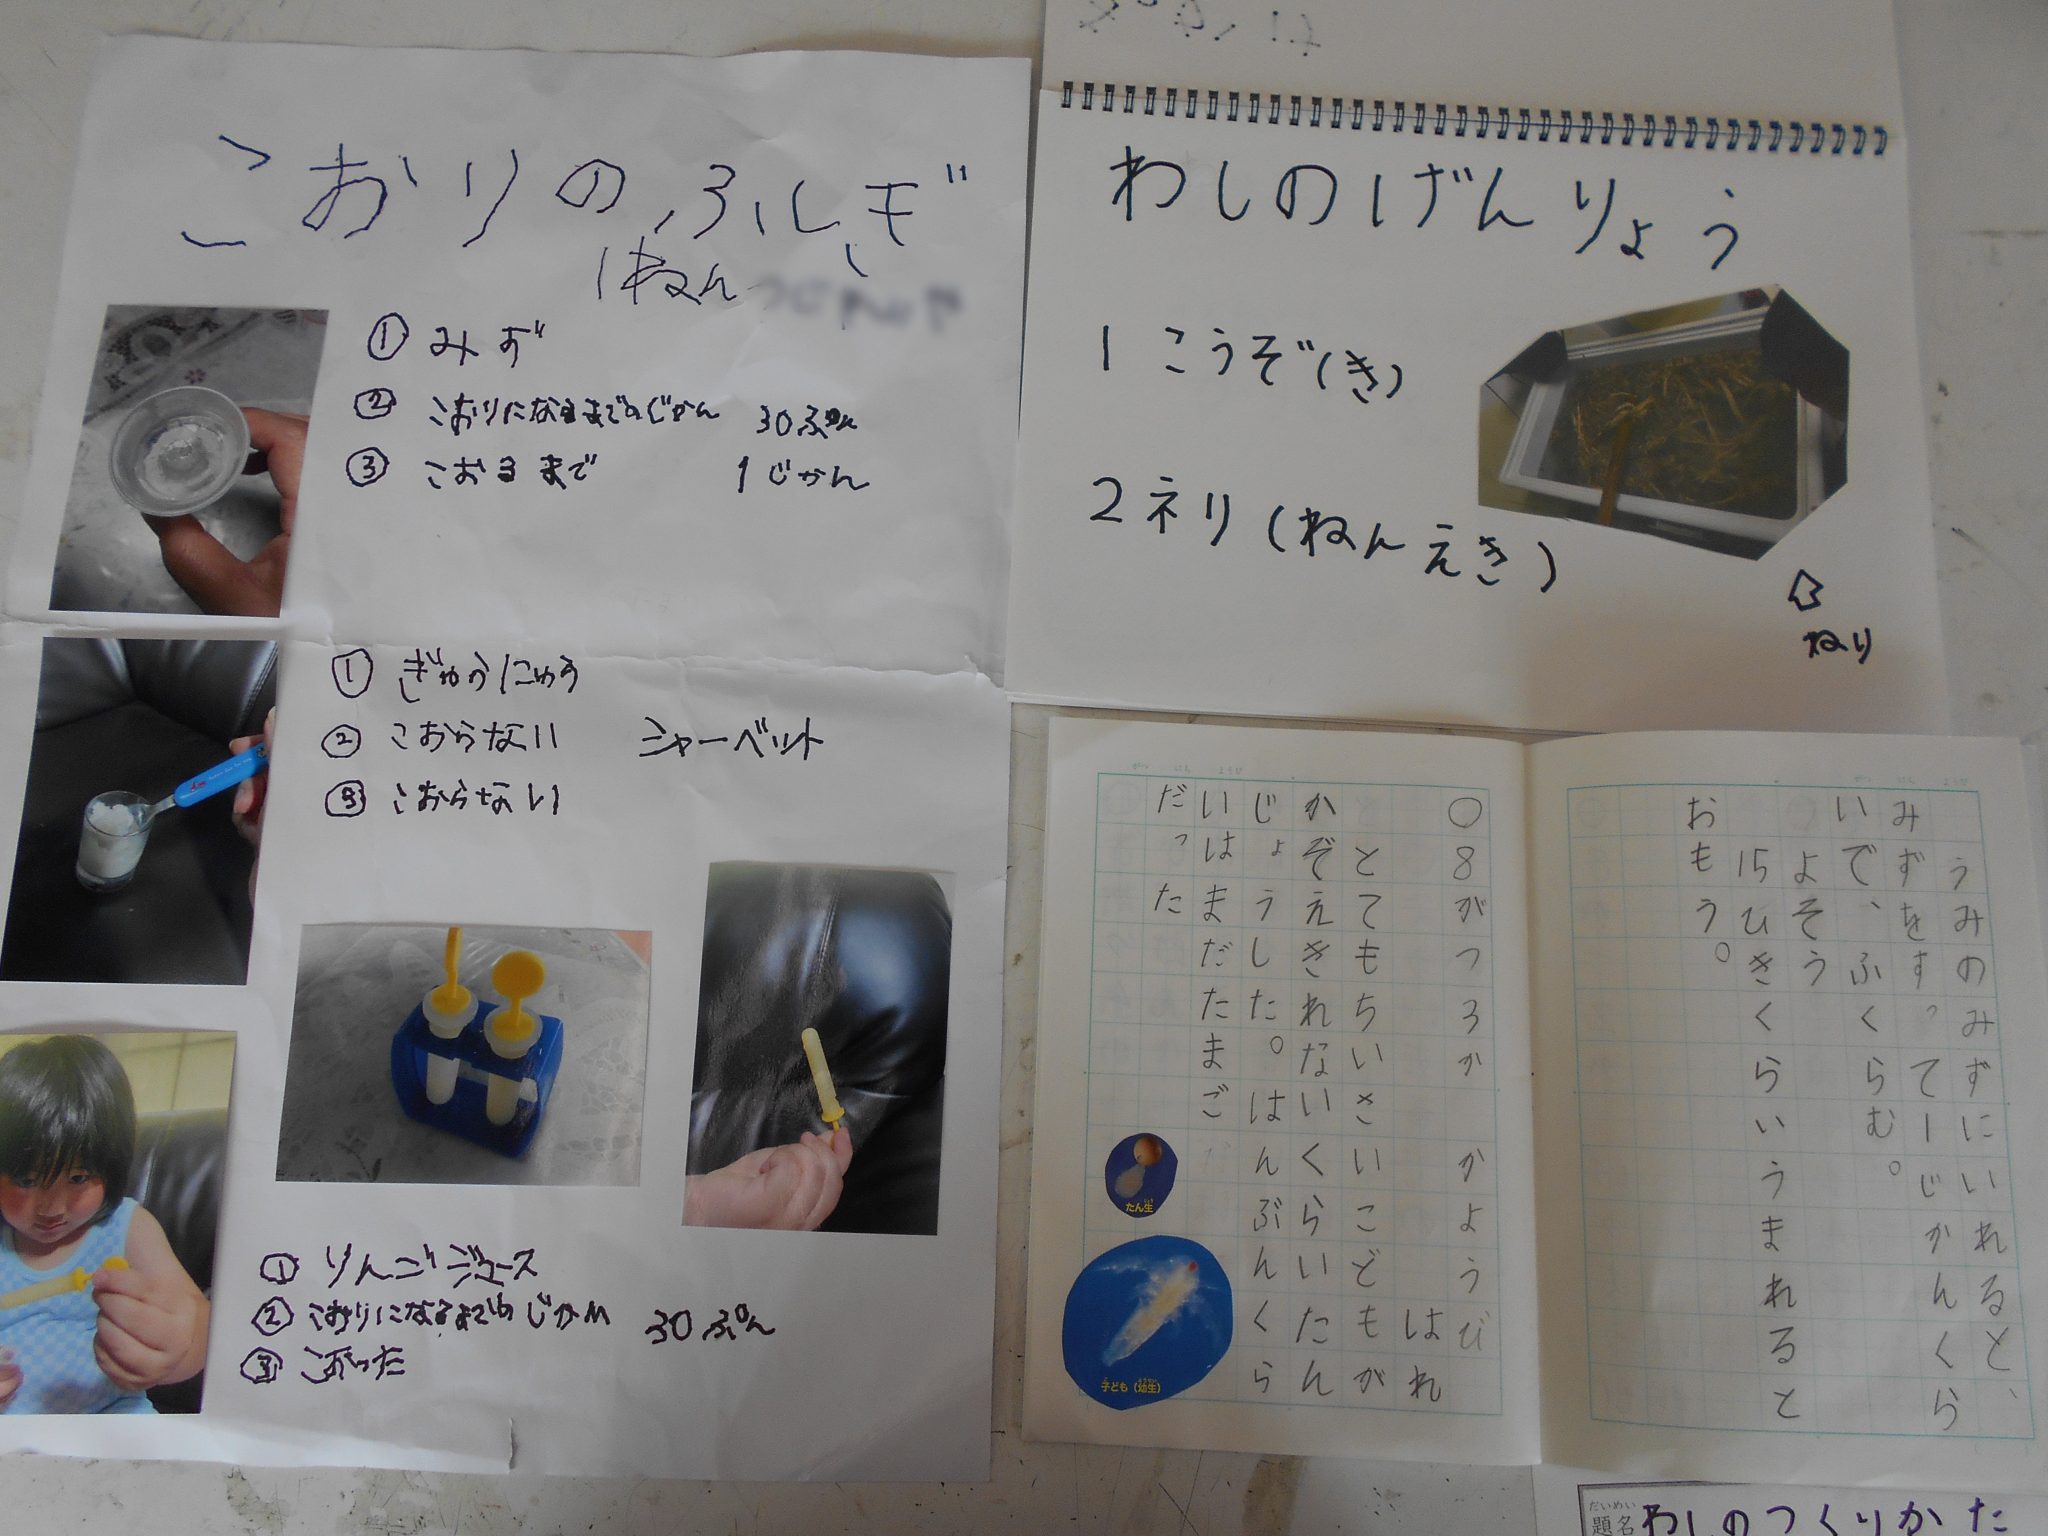 こおりのふしぎ
1ねん
① みず
② こおりになるまでのじかん 30ぷん
③ こおるまで 1じかん
① ぎゅうにゅう
② こおらない シャーベット
③ こおらない
① りんごジュース
② こおりになるまでのじかん 30ぷん
③ こおった
わしのげんりょう
1 こうぞ(き)
2 ネリ(ねんえき)
ねり
うみのみずにいれると、
みずをすってーじかんくら
いで、ふくらむ。
よそう
15ひきくらいうまれると
おもう。
〇8がつ3か かようび
はれ
とてもちいさいこどもが
かぞえきれないくらいたん
じょうした。はんぶんくら
いはまだたまご
だった
たん生
子ども(幼生)
だいめい
題名
わしのつくりかた